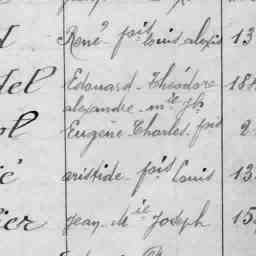 d René fois Louis alexis 13
del Edouard - Théodore 184
alexandre - m ie jh
ol Eugène Charles fois 2
ié aristide - fois Louis 13
ier Jean - M ie Joseph 15